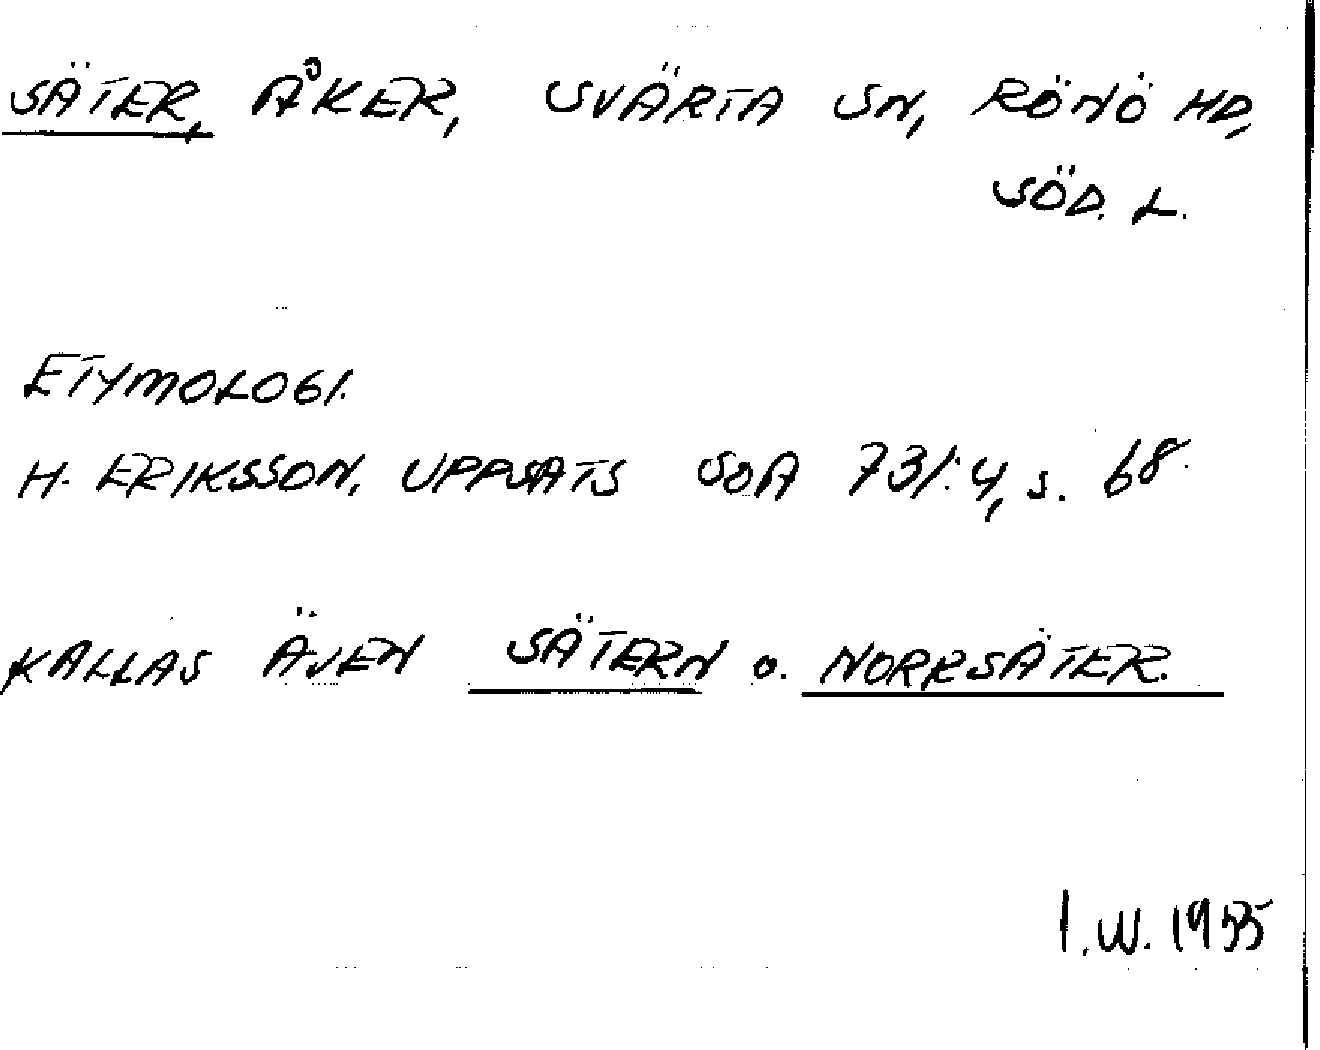 SÄTER, ÅKER, SVÄRTA SN, RÖNÖ HD,
SÖD. L.
ETYMOLOGI.
H. ERIKSSON, UPPSATS SOA 731:4, s. 68.
KALLAS ÄVEN SÄTERN o. NORRSÄTER.
I.W. 1955